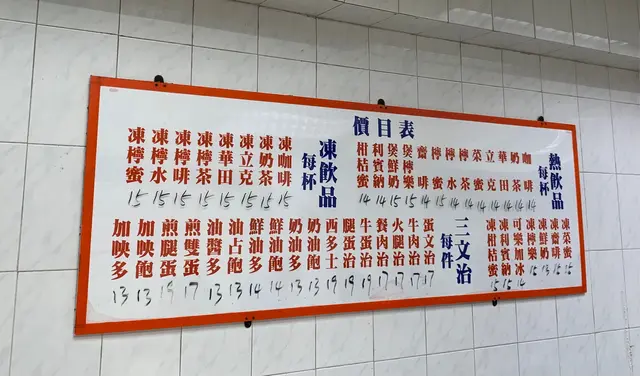 價目表
熱飲品
每杯
咖啡 14
奶茶 14
華田 14
立克 14
菜蜜 14
檸茶 14
檸水 14
檸蜜 14
齋啡 14
煲檸樂 15
煲鮮奶 15
利賓納 14
柑桔蜜 14
凍飲品
每杯
凍咖啡 15
凍奶茶 15
凍立克 15
凍華田 15
凍檸茶 15
凍檸啡 15
凍檸水 15
凍檸蜜 15
凍菜蜜 15
凍齋啡 15
凍鮮奶 13
凍檸樂 15
可樂加冰 14
凍利賓納 15
凍柑桔蜜 15
三文治
每件
蛋文治 17
牛肉治 17
火腿治 17
餐肉治 17
牛蛋治 19
腿蛋治 19
西多士 19
奶油多 13
奶油飽 13
鮮油多 14
鮮油飽 14
油占飽 13
油醬多 13
煎雙蛋 17
煎腿蛋 19
加映飽 13
加映多 13